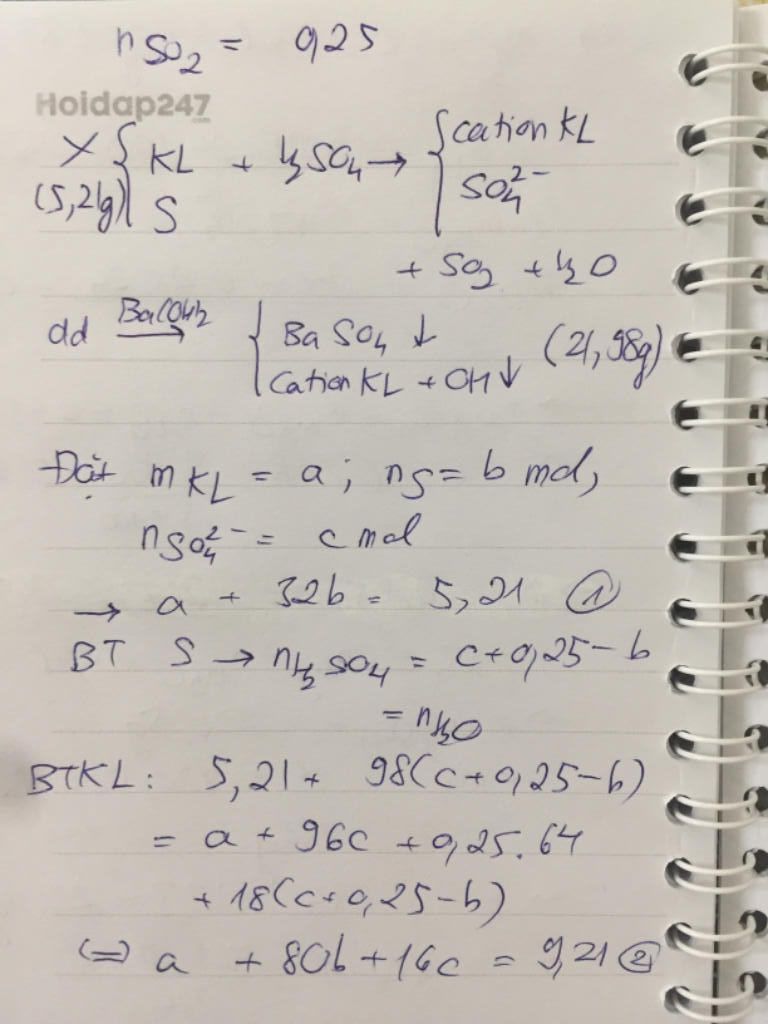 nSO₂ = 0,25
Hoidap247
X { KL + H₂SO₄ → { cation KL
(5,21g) S SO₄²⁻
+ SO₂ + H₂O
dd Ba(OH)₂ → { BaSO₄ ↓ (21,98g)
Cation KL + OH ↓
Đặt mKL = a ; nS = b mol,
nSO₄²⁻ = c mol
→ a + 32b = 5,21 ①
BT S → nH₂SO₄ = c+0,25-b
= nH₂O
BTKL : 5,21 + 98(c+0,25-b)
= a + 96c + 0,25.64
+ 18(c+0,25-b)
(=) a + 80b + 16c = 9,21 ②